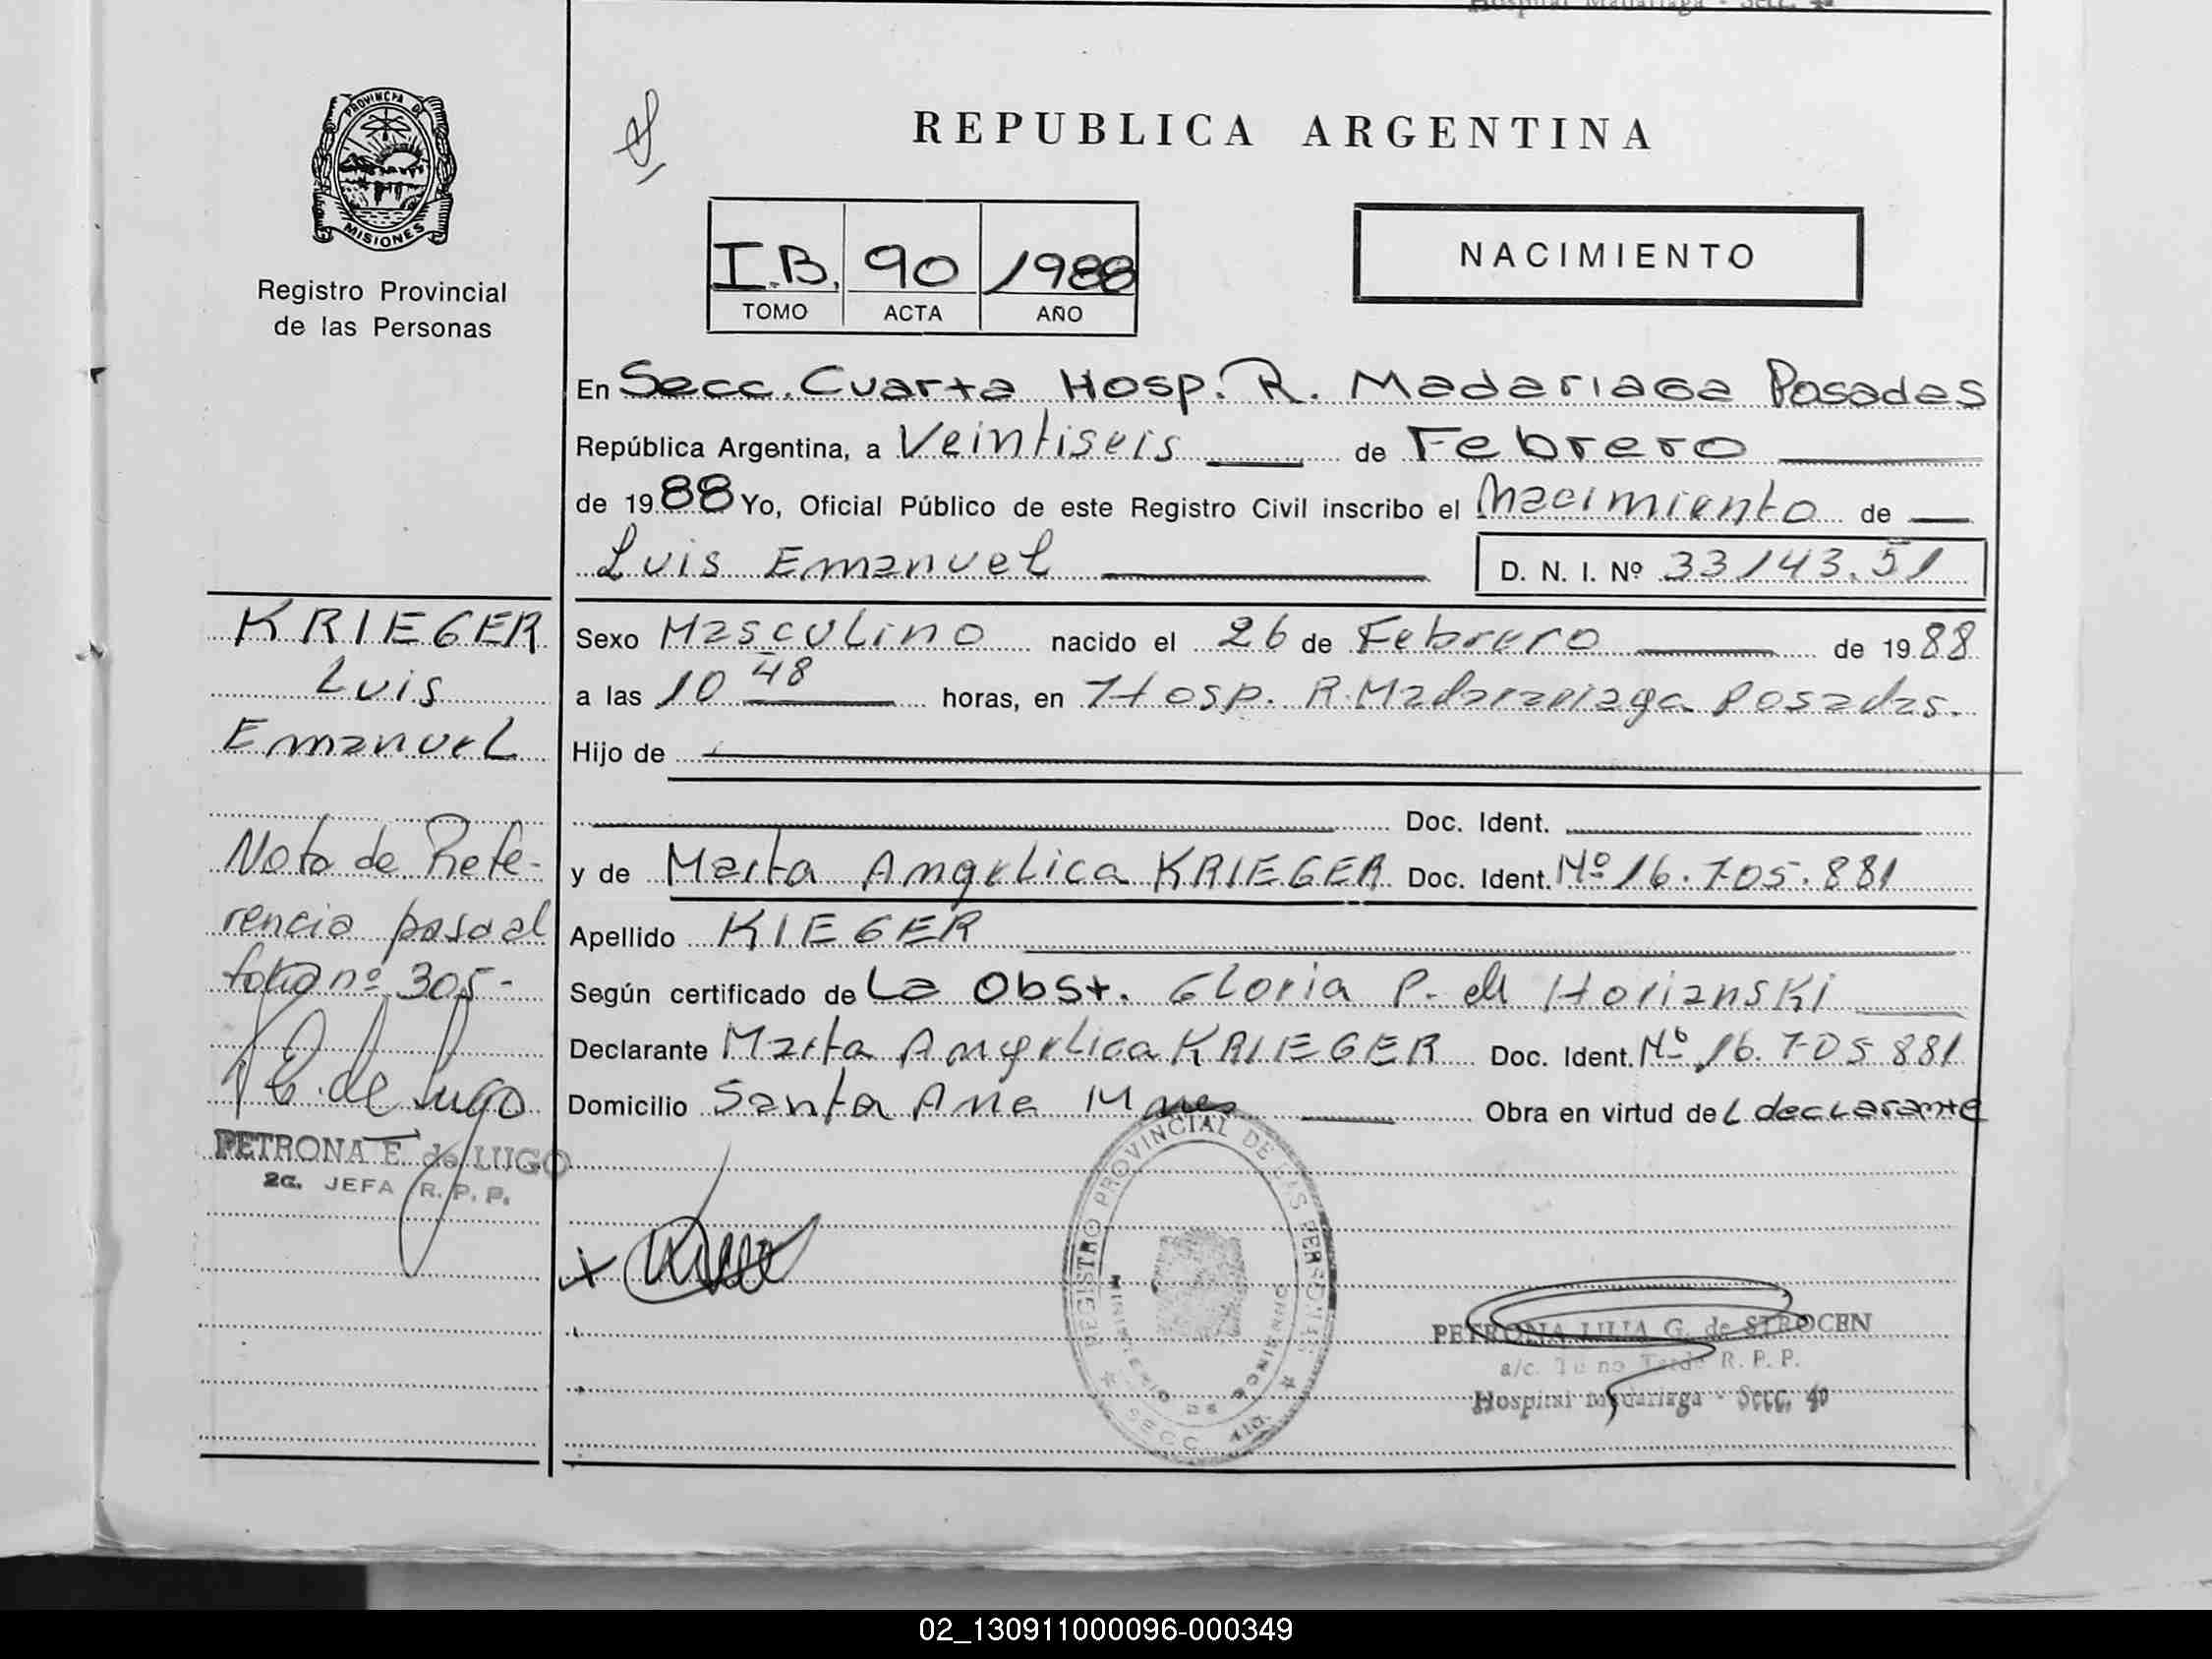 Hospital Madariaga - Secc. 4a
PROVINCIA DE
MISIONES
Registro Provincial
de las Personas
REPUBLICA ARGENTINA
I.B. 90 1988
TOMO ACTA AÑO
NACIMIENTO
En Secc. Cuarta Hosp. R. Madariaga Posadas
República Argentina, a Veintiseis de Febrero
de 1988 Yo, Oficial Público de este Registro Civil inscribo el Nacimiento de
Luis Emanuel D. N. I. Nº 33143.51
KRIEGER
Luis
Emanuel
Sexo Masculino nacido el 26 de Febrero de 1988
a las 10 48 horas, en Hosp. R. Madarariaga Posadas.
Hijo de
Doc. Ident.
y de Marta Angelica KRIEGER Doc. Ident. Nº 16.705.881
Apellido KIEGER
Según certificado de La Obst. Gloria P. de Horianski
Declarante Marta Angelica KRIEGER Doc. Ident. Nº 16.705 881
Domicilio Santa Ana Mnes Obra en virtud del declarante
Nota de Refe-
rencia pasa al
folio nº 305-
E. de Lugo
PETRONA E. de LUGO
2a. JEFA R. P. P.
REGISTRO PROVINCIAL DE LAS PERSONAS
MINISTERIO DE
SECC. 4ta.
PETRONA LILIA G. de STROCEN
a/c. Turno Tarde R. P. P.
Hospital Madariaga - Secc. 4a
02_130911000096-000349